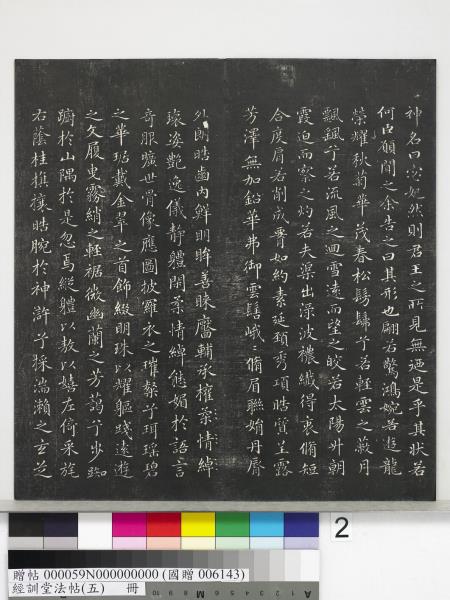 神名曰宓妃然則君王之所見無迺是乎其狀若
何臣願聞之余告之曰其形也翩若驚鴻婉若遊龍
榮耀秋菊華茂春松髣髴兮若輕雲之蔽月
飄颻兮若流風之迴雪遠而望之皎若太陽升朝
霞迫而察之灼若夫蕖出淥波穠纖得衷脩短
合度肩若削成腰如約素延頸秀項皓質呈露
芳澤無加鉛華弗御雲髻峨峨脩眉聯娟丹脣
外朗皓齒內鮮明眸善睞靨輔承權柔情綽
瓌姿艷逸儀靜體閑柔情綽態媚於語言
奇服曠世骨像應圖披羅衣之璀粲兮珥瑤碧
之華琚戴金翠之首飾綴明珠以耀軀踐遠遊
之文履曳霧綃之輕裾微幽蘭之芳藹兮步踟
躕於山隅於是忽焉縱體以敖以嬉左倚采旄
右蔭桂旗攘皓腕於神滸兮採湍瀨之玄芝
2
贈帖 000059N000000000 (國贈 006143)
經訓堂法帖(五) 冊